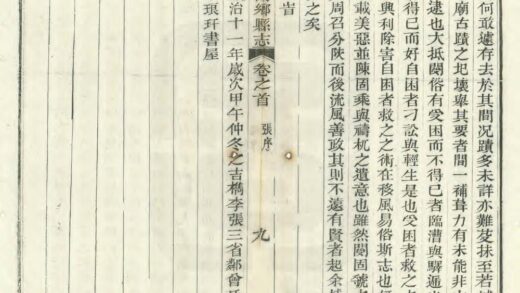 何敢墟有去於其間况蹟多未詳亦難芟抹至若
廟古蹟之圮壞舉其要者間一補葺力有未能非
逮也大抵閩俗有受困而不得巳者臨漕與驛遞也
得巳而好自困者刁訟與輕生是也受困者救之
興利除害自困者救之之術在移風易俗斯志也
載美惡並陳固乘與禱杌之遺意也雖然閩固號
周召分陝而後流風善政其則不遠有賢者起余
之矣
旹
鄉縣志 卷之首 張序 九
治十一年歲次甲午仲冬之吉檇李張三省鄰曾
琅玕書屋